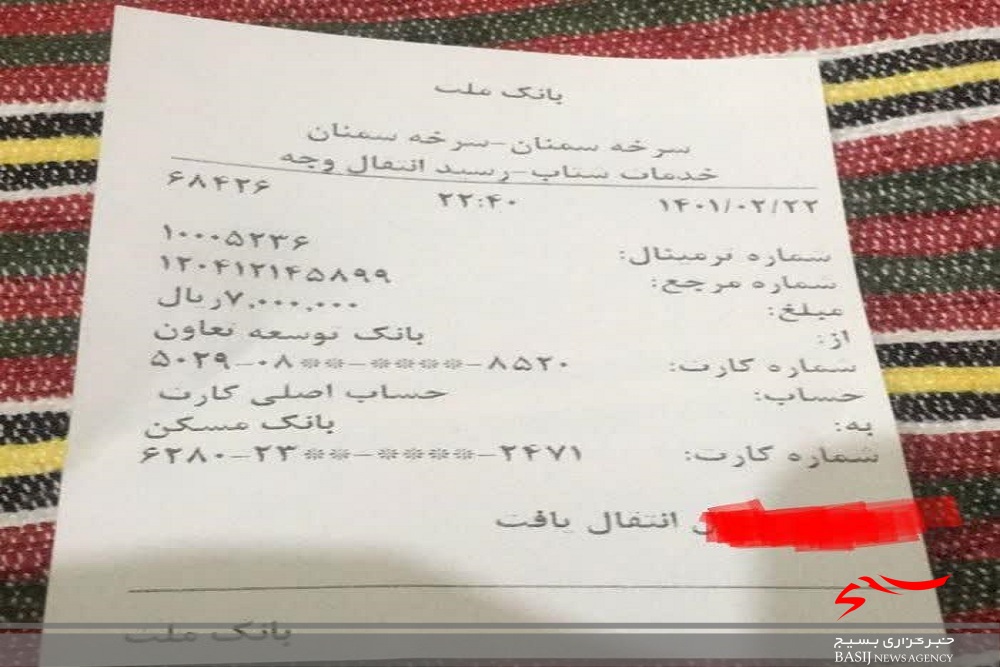 بانک ملت
سرخه سمنان-سرخه سمنان
خدمات شتاب-رسید انتقال وجه
۱۴۰۱/۰۲/۲۲ ۲۲:۴۰ ۶۸۴۲۶
شماره ترمینال: ۱۰۰۰۵۲۳۶
شماره مرجع: ۱۲۰۴۱۲۱۴۵۸۹۹
مبلغ: ۷,۰۰۰,۰۰۰ریال
از: بانک توسعه تعاون
شماره کارت: ۵۰۲۹-۰۸**-****-۸۵۲۰
حساب: حساب اصلی کارت
به: بانک مسکن
شماره کارت: ۶۲۸۰-۲۳**-****-۲۴۷۱
انتقال یافت
بانک ملت
بسیج
خبرگزاری بسیج
BASIJ NEWS AGENCY